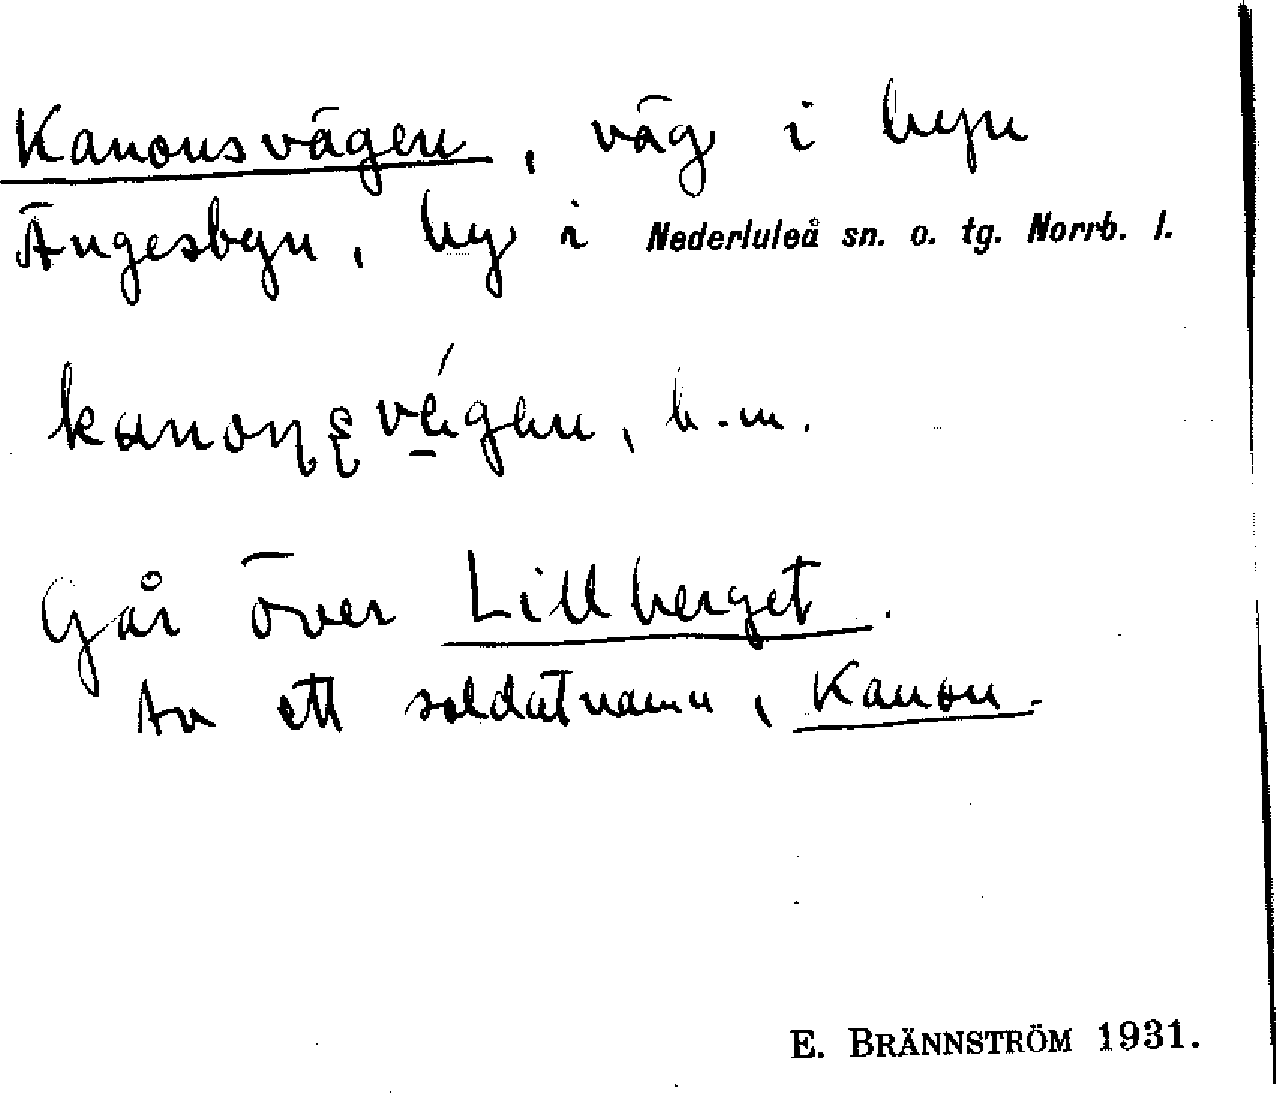 Kanonsvägen, väg i byn
Ängesbyn, by i Nederluleå sn. o. tg. Norrb. l.
b. m.
Går över Lillberget.
Av ett soldatnamn, Kanon.
E. BRÄNNSTRÖM 1931.